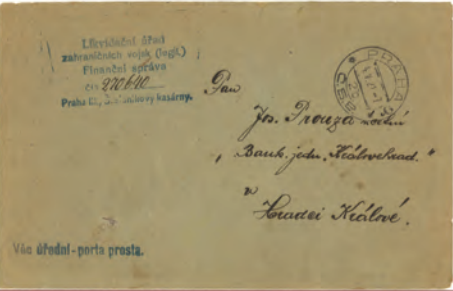 Likvidační úřad
zahraničních vojsk (legií.)
Finanční správa
čís. 220640
Praha
kasárny.
PRAHA
Pan
Jos. Prouza
„Bank. jedn. Královéhrad."
v
Hradci Králové.
Věc úřední - porta prosta.